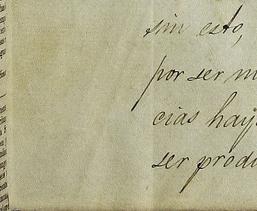 sin esto,
por ser m
cias hay
ser prod